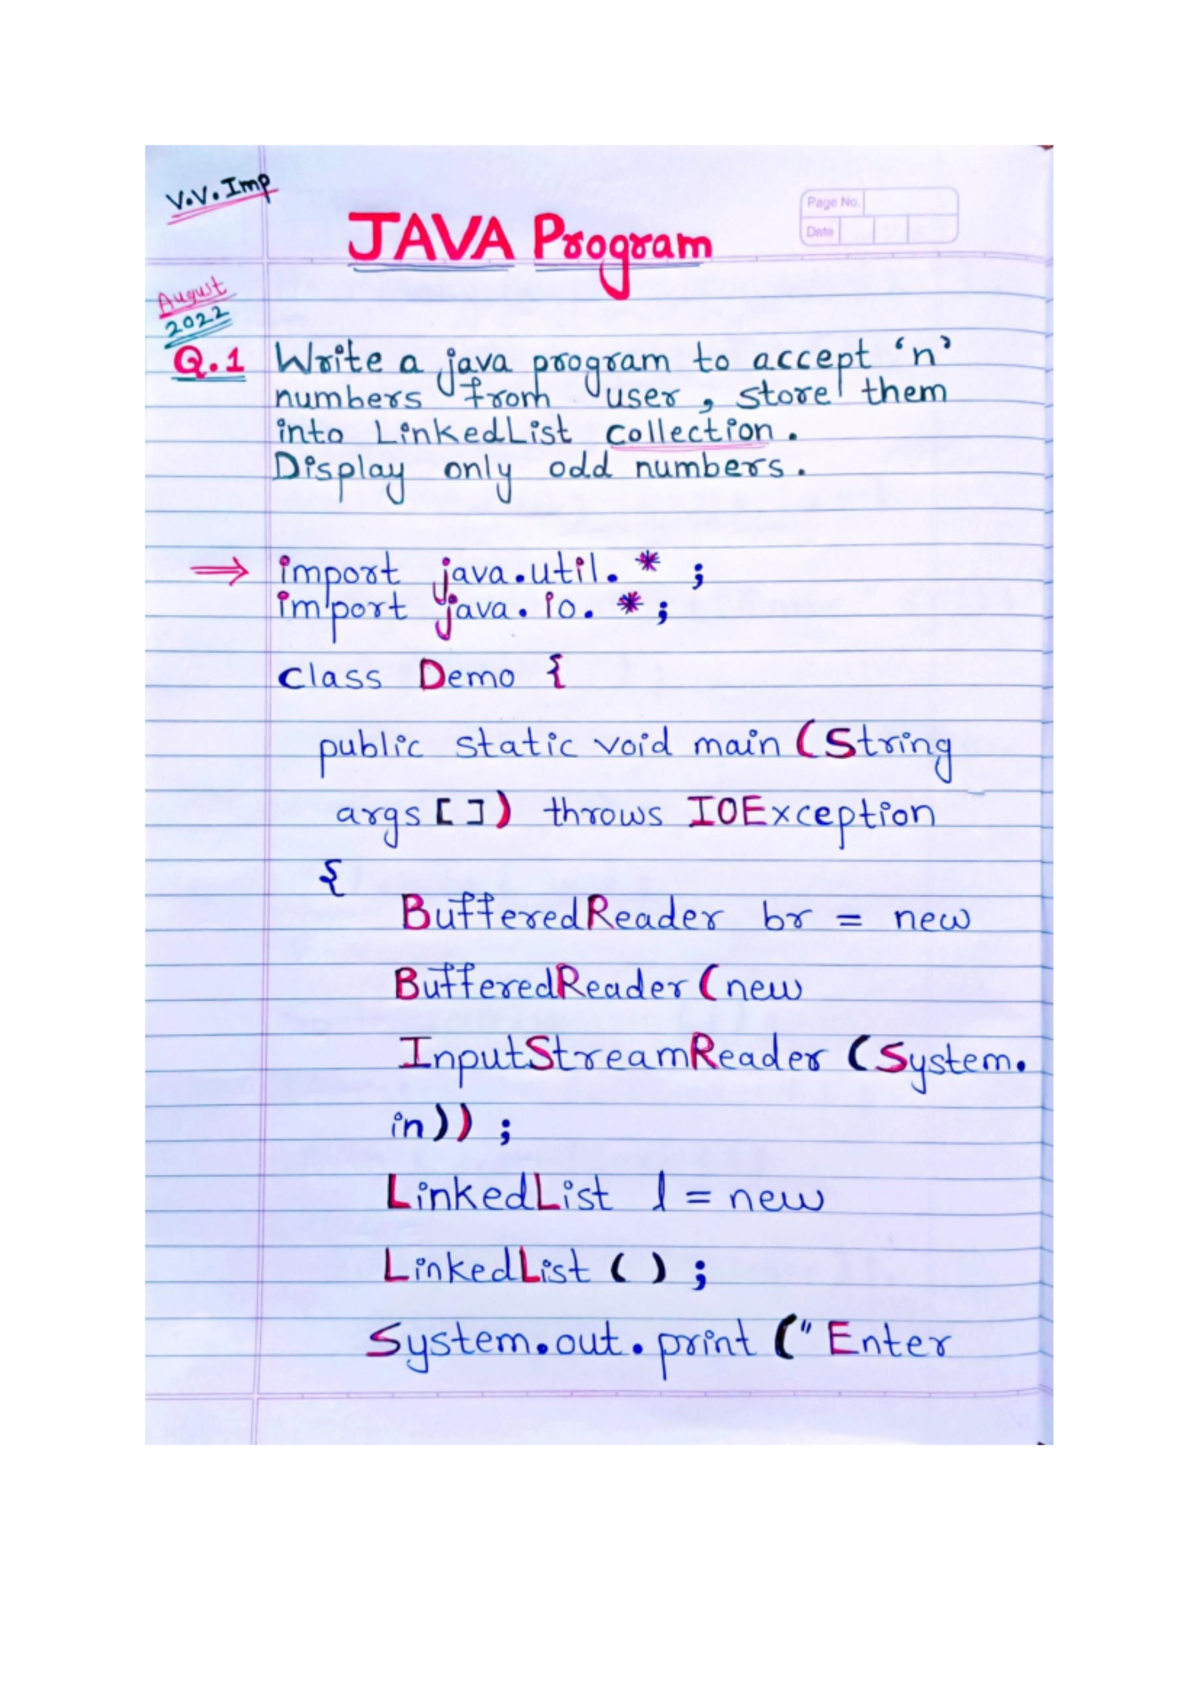 V.V. Imp
Page No.
Date
JAVA Program
August
2022
Q.1 Write a java program to accept 'n'
numbers from user, store them
into LinkedList collection.
Display only odd numbers.
⇒ import java.util.* ;
import java.io.* ;
class Demo {
public static void main (String
args []) throws IOException
{
BufferedReader br = new
BufferedReader (new
InputStreamReader (System.
in)) ;
LinkedList l = new
LinkedList () ;
System.out.print (" Enter